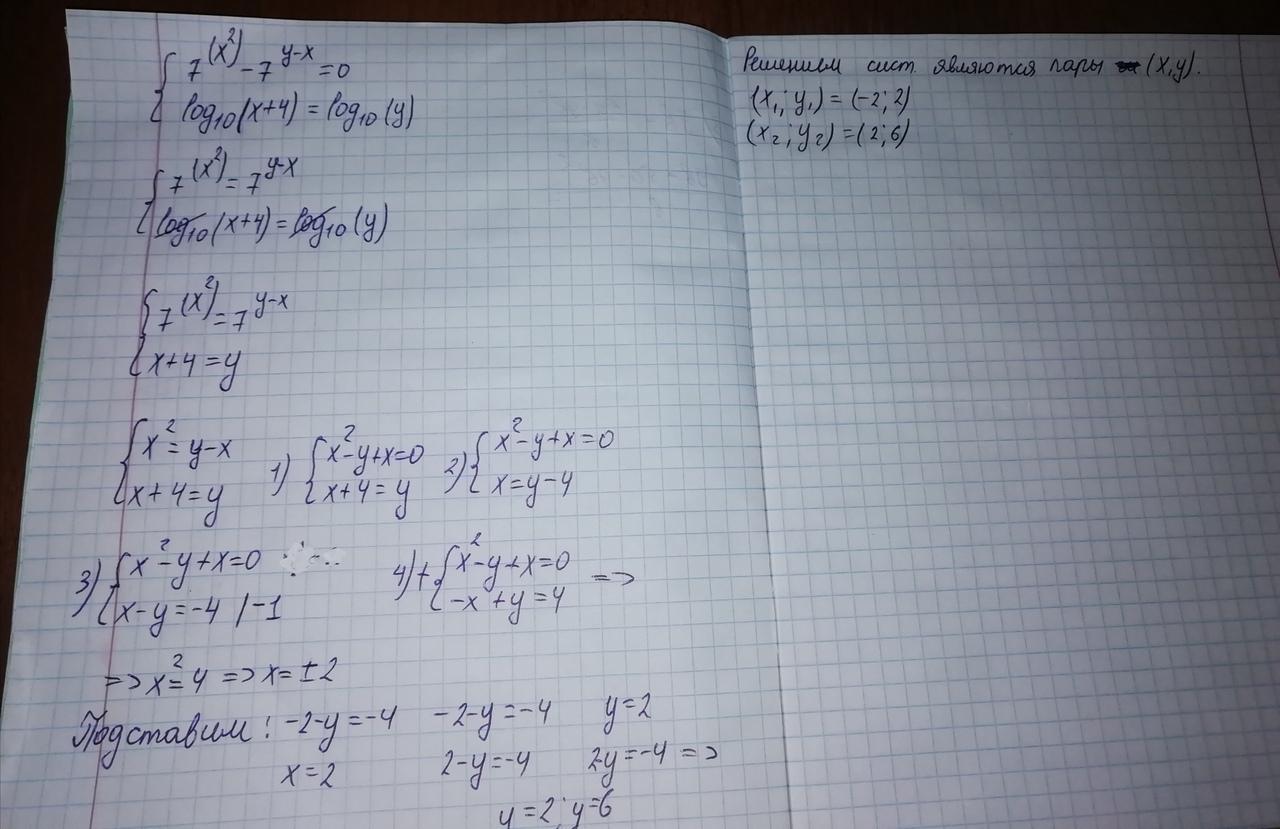 7^(x²) - 7^(y-x) = 0
log₁₀(x+4) = log₁₀(y)
7^(x²) = 7^(y-x)
log₁₀(x+4) = log₁₀(y)
7^(x²) = 7^(y-x)
x+4 = y
x² = y-x 1) x²-y+x=0 2) x²-y+x=0
x+4=y x+4=y x=y-4
3) x²-y+x=0 4)+ x²-y+x=0 =>
x-y=-4 /-1 -x+y=4
=> x²=4 => x=±2
Подставим: -2-y=-4 -2-y=-4 y=2
x=2 2-y=-4 2-y=-4 =>
y=2; y=6
Решением сист. являются пары (x,y).
(x₁; y₁) = (-2; 2)
(x₂; y₂) = (2; 6)